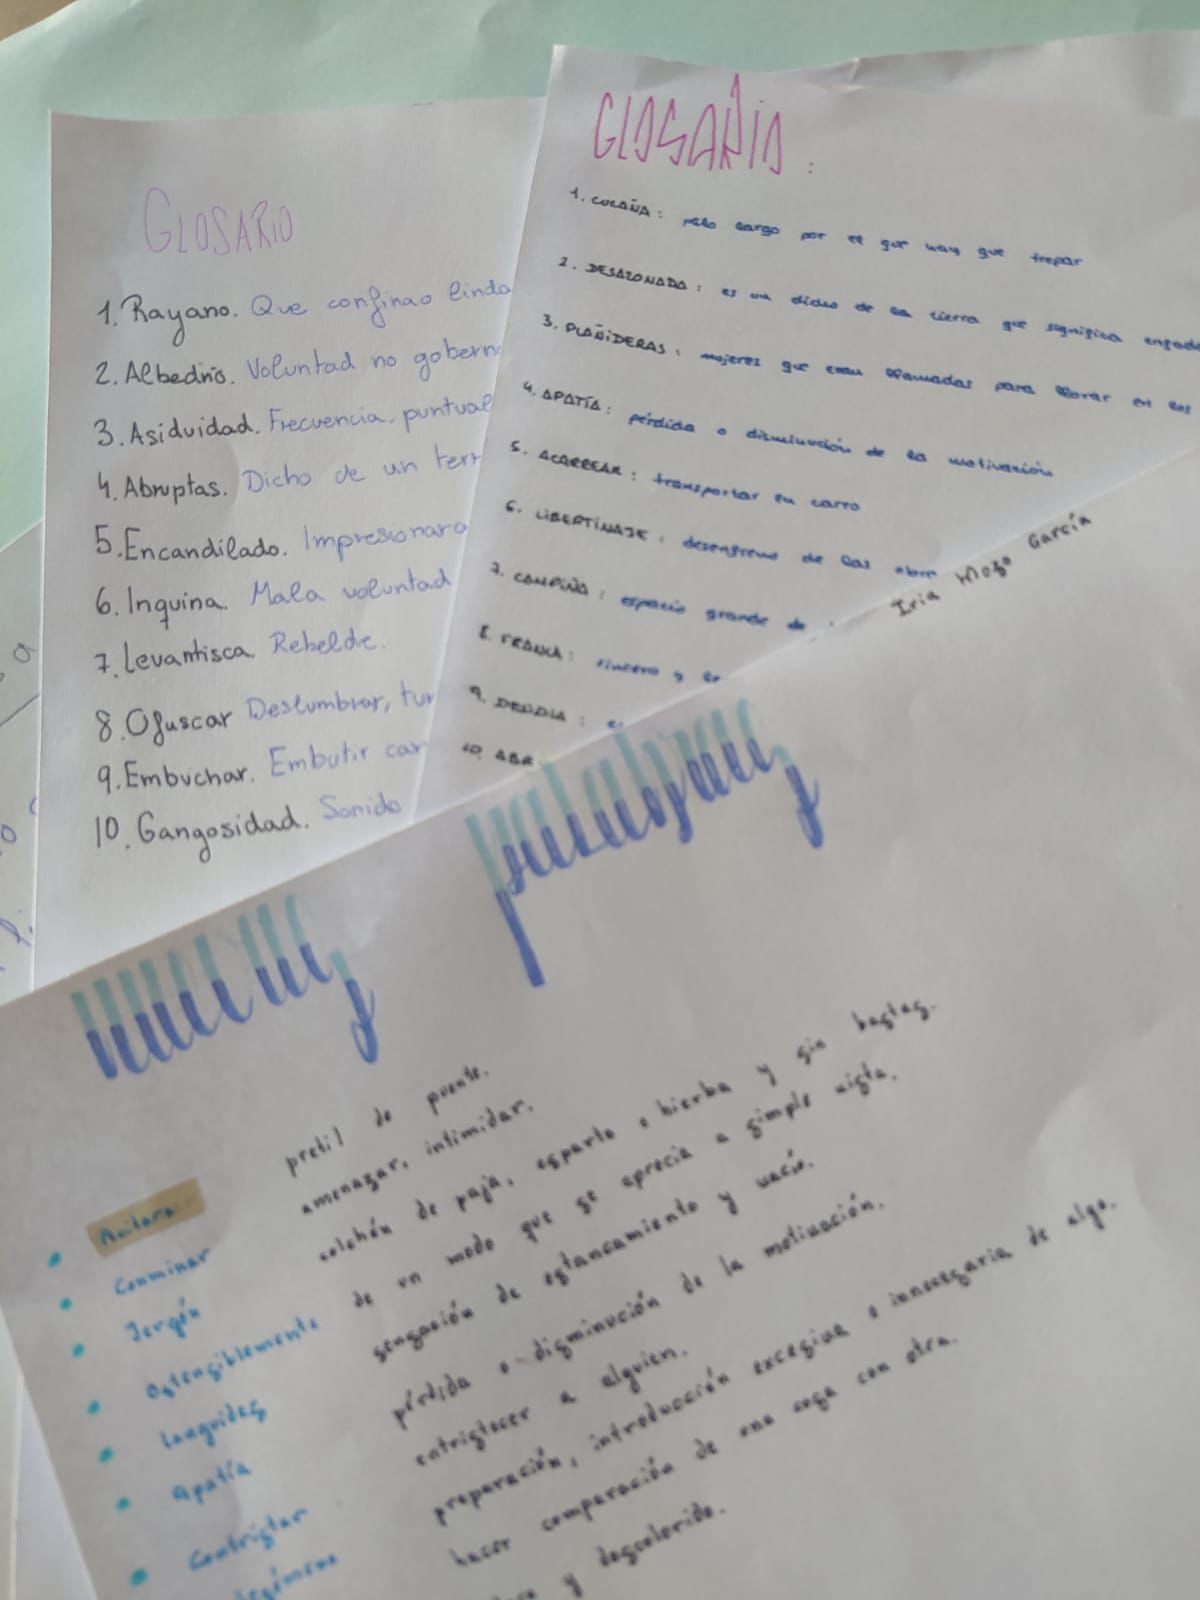 GLOSARIO
1. Rayano. Que confina o linda
2. Albedrío. Voluntad no gobern
3. Asiduidad. Frecuencia, puntual
4. Abruptas. Dicho de un terr
5. Encandilado. Impresionar o
6. Inquina. Mala voluntad
7. Levantisca. Rebelde.
8. Ofuscar Deslumbrar, tur
9. Embuchar. Embutir car
10. Gangosidad. Sonido
GLOSARIO:
1. CUCAÑA: palo largo por el que hay que trepar
2. DESAZONADA: es un dicho de la tierra que significa enfada
3. PLAÑIDERAS: mujeres que eran llamadas para llorar en los
4. APATÍA: pérdida o disminución de la motivación
5. ACARREAR: transportar en carro
6. LIBERTINAJE: desenfreno de las obr
7. CAMPIÑA: espacio grande de
8. FRANCA: sincero y
9.
10. ABR
Iria Mozo García
palabras
pretil de puente.
Conminar amenazar, intimidar.
Jergón colchón de paja, esparto o hierba y sin bastas.
Ostensiblemente de un modo que se aprecia a simple vista.
Languidez sensación de estancamiento y vacío.
Apatía pérdida o disminución de la motivación.
Contristar entristecer a alguien.
preparación, introducción excesiva o innecesaria de algo.
hacer comparación de una cosa con otra.
y descolorido.